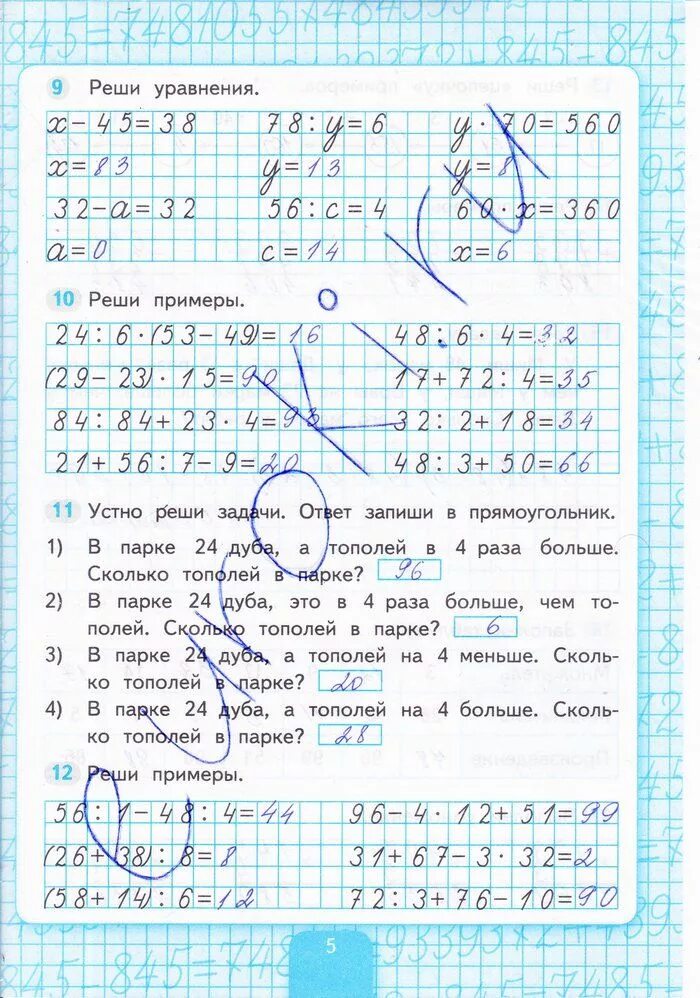 9 Реши уравнения.
х-45=38 78:у=6 у·70=560
х=83 у=13 у=8
32-а=32 56:с=4 60·х=360
а=0 с=14 х=6
10 Реши примеры.
24:6·(53-49)=16 48:6·4=32
(29-23)·15=90 17+72:4=35
84:84+23·4=93 32:2+18=34
21+56:7-9=20 48:3+50=66
11 Устно реши задачи. Ответ запиши в прямоугольник.
1) В парке 24 дуба, а тополей в 4 раза больше.
Сколько тополей в парке? 96
2) В парке 24 дуба, это в 4 раза больше, чем то-
полей. Сколько тополей в парке? 6
3) В парке 24 дуба, а тополей на 4 меньше. Сколь-
ко тополей в парке? 20
4) В парке 24 дуба, а тополей на 4 больше. Сколь-
ко тополей в парке? 28
12 Реши примеры.
56:1-48:4=44 96-4·12+51=99
(26+38):8=8 31+67-3·32=2
(58+14):6=12 72:3+76-10=90
5